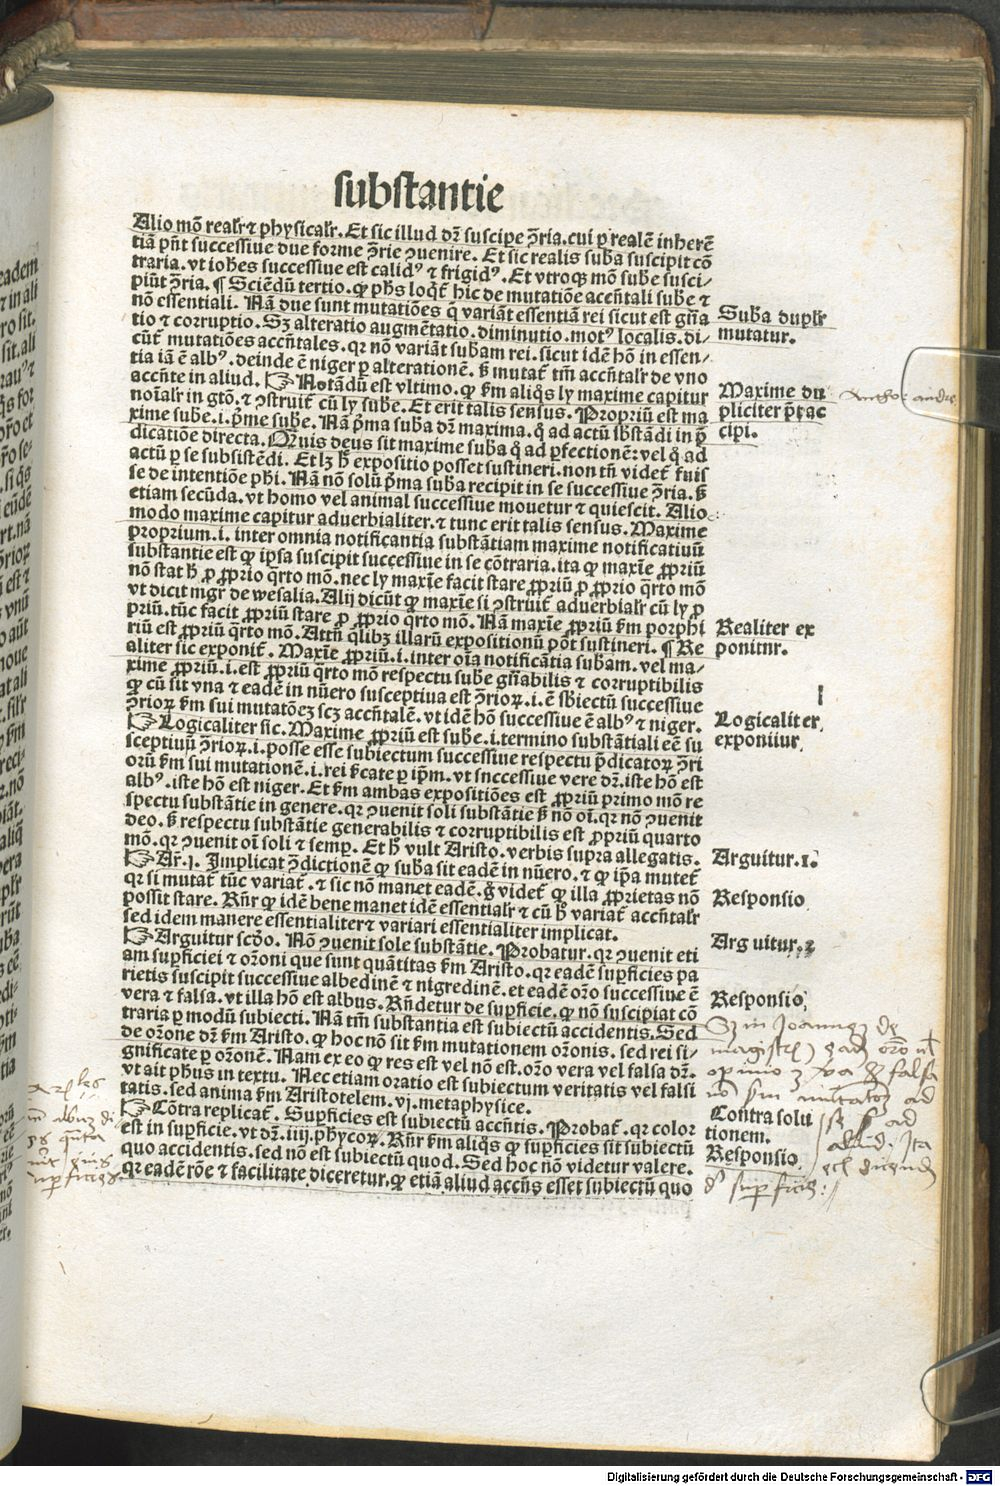 substantie
Alio mō realr̄ ⁊ physicalr̄. Et sic illud dr̄ suscipe ꝯ̄ria. cui ꝑ realē inherē
tiā pn̄t successiue due forme ꝯ̄rie ꝯuenire. Et sic realis suba suscipit cō
traria. vt iohēs successiue est calidꝰ ⁊ frigidꝰ. Et vtroqꝫ mō sube susci-
piūt ꝯ̄ria. ¶ Sciēdū tertio. ꝙ phs loqt̄ hic de mutatiōe accn̄tali sube ⁊
nō essentiali. Nā due sunt mutatiōes q̄ variāt essentiā rei sicut est gn̄a
tio ⁊ corruptio. Sꝫ alteratio augmētatio. diminutio. motꝰ localis. di-
cūt̄ mutatiōes accn̄tales. qꝛ nō variāt subam rei. sicut idē hō in essen-
tia iā ē albꝰ. deinde ē niger ꝑ alterationē. ꝫ mutat̄ tm̄ accn̄talr̄ de vno
accn̄te in aliud. ☞ Notādū est vltimo. ꝙ ꝼm aliqͥs ly maxime capitur
noīalr̄ in gtō. ⁊ ꝯstruit̄ cū ly sube. Et erit talis sensus. Propriū est ma
xime sube. i. pͥme sube. Nā pͥma suba dr̄ maxima. qͣ ad actū sbstādi in p̄
dicatiōe directa. Qͣuis deus sit maxime suba qͣ ad ꝑfectionē: vel qͣ ad
actū ꝑ se subsistēdi. Et lꝫ h̄ expositio posset sustineri. non tn̄ videt̄ fuis
se de intentiōe phi. Nā nō solū pͥma suba recipit in se successiue ꝯ̄ria. ꝫ
etiam secūda. vt homo vel animal successiue mouetur ⁊ quiescit. Alio
modo maxime capitur aduerbialiter. ⁊ tunc erit talis sensus. Maxime
proprium. i. inter omnia notificantia substātiam maxime notificatiuū
substantie est ꝙ ipsa suscipit successiue in se cōtraria. ita ꝙ maxīe ꝓpriū
nō stat h̄ ꝓ ꝓprio qͣrto mō. nec ly maxīe facit stare ꝓpriū ꝓ ꝓprio qͣrto mō
vt dicit mgr̄ de wesalia. Alij dicūt ꝙ maxīe si ꝯstruit̄ aduerbialr̄ cū ly ꝓ
priū. tūc facit ꝓpriū stare ꝓ ꝓprio qͣrto mō. Nā maxīe ꝓpriū ꝼm porphi
riū est ꝓpriū qͣrto mō. Attn̄ qͣlibꝫ illarū expositionū pōt sustineri. ¶ Re
aliter sic exponit̄. Maxīe ꝓpriū. i. inter oīa notificātia subam. vel ma-
xime ꝓpriū. i. est ꝓpriū qͣrto mō respectu sube gn̄abilis ⁊ corruptibilis
ꝙ cū sit vna ⁊ eadē in nūero susceptiua est ꝯ̄rioꝝ. i. ē sbiectū successiue
ꝯ̄rioꝝ ꝼm sui mutatōeꝫ scꝫ accn̄talē. vt idē hō successiue ē albꝰ ⁊ niger.
☞ Logicaliter sic. Maxime ꝓpriū est sube. i. termino substātiali eē su
sceptiuū ꝯ̄rioꝝ. i. posse esse subiectum successiue respectu p̄dicatoꝝ ꝯ̄ri
orū ꝼm sui mutationē. i. rei ꝼcate ꝑ ip̄m. vt snccessiue vere dr̄. iste hō est
albꝰ. iste hō est niger. Et ꝼm ambas expositiōes est ꝓpriū primo mō re
spectu substātie in genere. qꝛ ꝯuenit soli substātie ꝫ nō oī. qꝛ nō ꝯuenit
deo. ꝫ respectu substātie generabilis ⁊ corruptibilis est ꝓpriū quarto
mō. qꝛ ꝯuenit oī soli ⁊ semꝑ. Et h̄ vult Aristo. verbis supra allegatis.
☞ Ar̄. j. Implicat ꝯ̄dictionē ꝙ suba sit eadē in nūero. ⁊ ꝙ ip̄a mutet̄
qꝛ si mutat̄ tūc variat̄. ⁊ sic nō manet eadē. g̊ videt̄ ꝙ illa ꝓprietas nō
possit stare. Rn̄r ꝙ idē bene manet idē essentialr̄ ⁊ cū h̄ variat̄ accn̄talr̄
sed idem manere essentialiter ⁊ variari essentialiter implicat.
☞ Arguitur scd̄o. Nō ꝯuenit sole substātie. Probatur. qꝛ ꝯuenit eti
am suꝑficiei ⁊ or̄oni que sunt quātitas ꝼm Aristo. qꝛ eadē suꝑficies pa
rietis suscipit successiue albedinē ⁊ nigredinē. et eadē or̄o successiue ē
vera ⁊ falsa. vt illa hō est albus. Rn̄detur de suꝑficie. ꝙ nō suscipiat cō
traria ꝑ modū subiecti. Nā tm̄ substantia est subiectū accidentis. Sed
de or̄one dr̄ ꝼm Aristo. ꝙ hoc nō sit ꝼm mutationem or̄onis. sed rei si-
gnificate ꝑ or̄onē. Nam ex eo ꝙ res est vel nō est. or̄o vera vel falsa dr̄.
vt ait phus in textu. Nec etiam oratio est subiectum veritatis vel falsi
tatis. sed anima ꝼm Aristotelem. vj. metaphysice.
☞ Cōtra replicat̄. Suꝑficies est subiectū accn̄tis. Probat̄. qꝛ color
est in suꝑficie. vt dr̄. iiij. phycoꝝ. Rn̄r ꝼm aliqͥs ꝙ suꝑficies sit subiectū
quo accidentis. sed nō est subiectū quod. Sed hoc nō videtur valere.
qꝛ eadē rōe ⁊ facilitate diceretur. ꝙ etiā aliud accn̄s esset subiectū quo
Suba duplr̄
mutatur.
Maxime du
pliciter p̄t ac
cipi.
Realiter ex
ponitnr.
Logicaliter
exponiiur.
Arguitur. 1.
Responsio
Arguitur. 2
Responsio
Contra solu
tionem.
Responsio
Digitalisierung gefördert durch die Deutsche Forschungsgemeinschaft - DFG